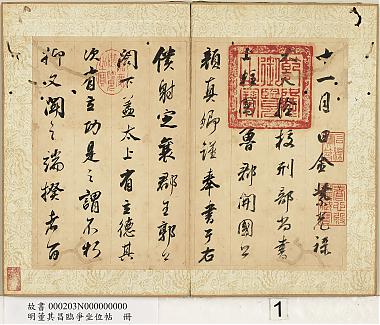 十一月日金紫光祿
大夫檢校刑部尚書
上柱國魯郡開國公
顏真卿謹奉書于右
僕射定襄郡王郭公
閤下蓋太上有立德其
次有立功是之謂不朽
抑又聞之端揆者百
故書 000203N000000000
明董其昌臨爭坐位帖 冊
1